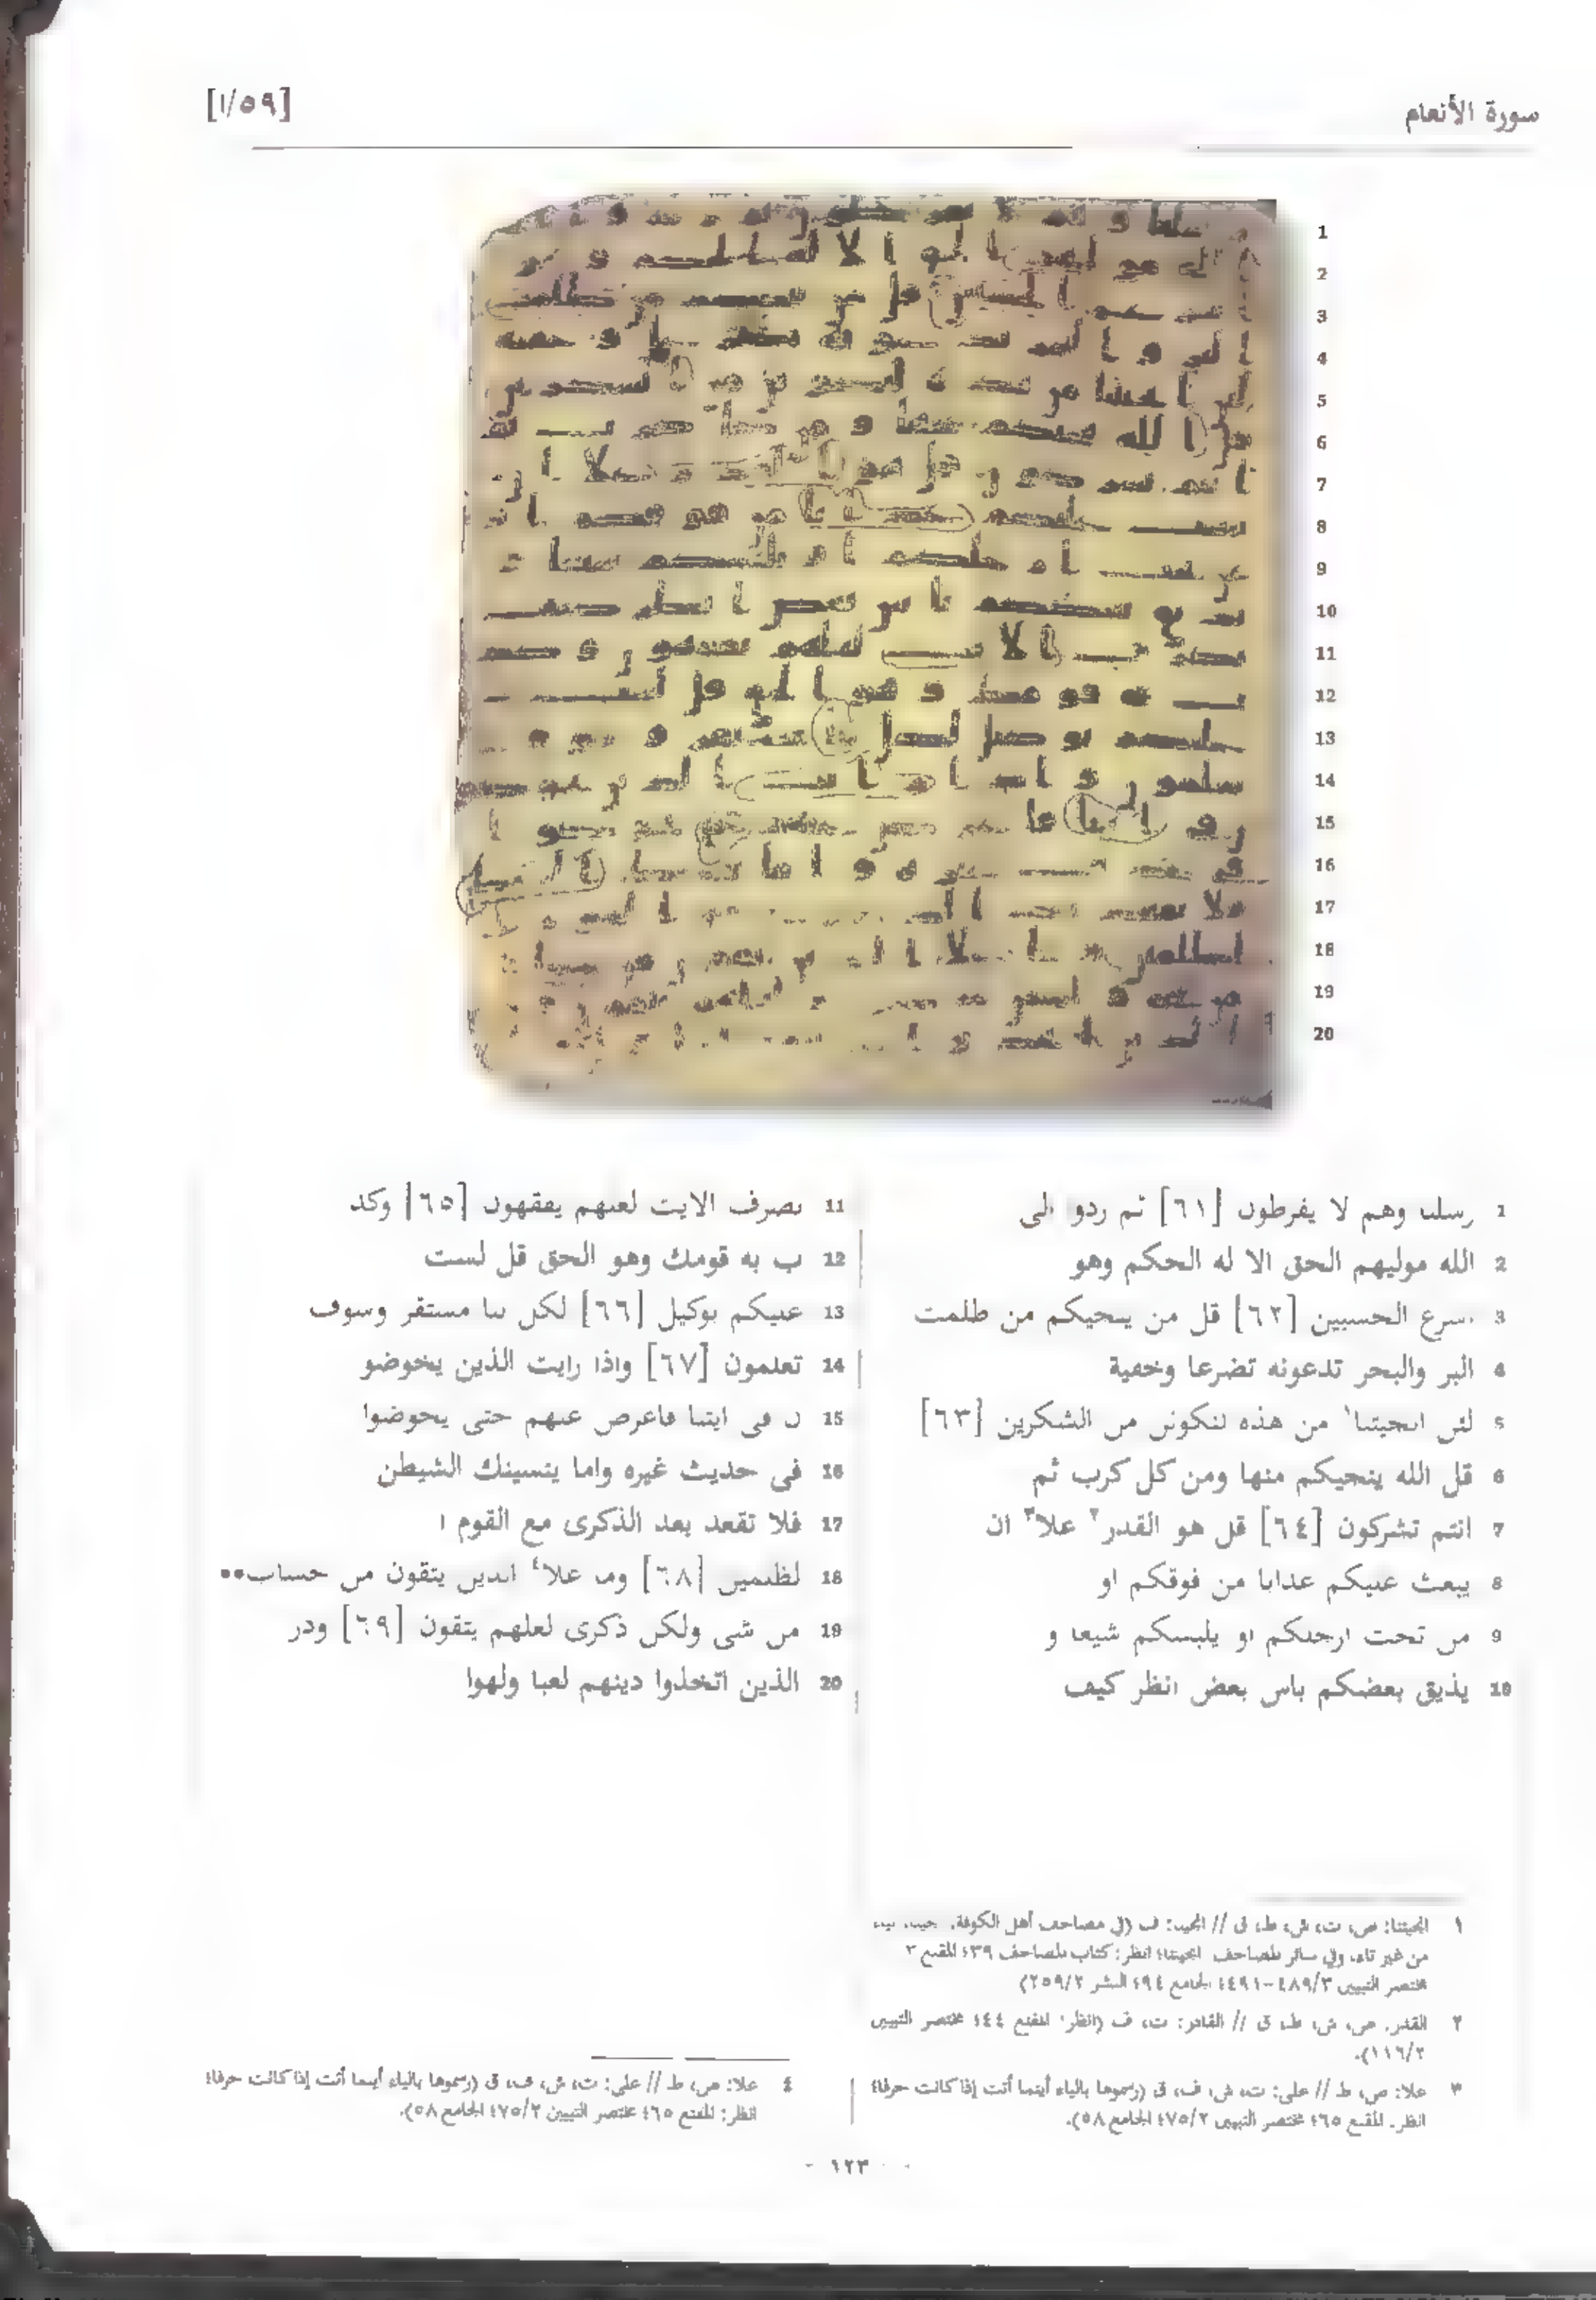 سورة الأنعام
[١/٥٩]
1 رسلنا وهم لا يفرطون [٦١] ثم ردو الى
2 الله موليهم الحق الا له الحكم وهو
3 اسرع الحسبين [٦٢] قل من ينحيكم من ظلمت
4 البر والبحر تدعونه تضرعا وخفية
5 لئن انحيتنا١ من هذه لنكونن من الشكرين [٦٣]
6 قل الله ينجيكم منها ومن كل كرب ثم
7 انتم تشركون [٦٤] قل هو القدر٢ علا٣ ان
8 يبعث عليكم عذابا من فوقكم او
9 من تحت ارجلكم او يلبسكم شيعا و
10 يذيق بعضكم باس بعض انظر كيف
11 نصرف الايت لعلهم يفقهون [٦٥] وكذ
12 ب به قومك وهو الحق قل لست
13 عليكم بوكيل [٦٦] لكل نبا مستقر وسوف
14 تعلمون [٦٧] واذا رايت الذين يخوضو
15 ن في ايتنا فاعرض عنهم حتى يخوضوا
16 فى حديث غيره واما ينسينك الشيطن
17 فلا تقعد بعد الذكرى مع القوم ا
18 لظلمين [٦٨] وما علا٤ الذين يتقون من حساب••
19 من شى ولكن ذكرى لعلهم يتقون [٦٩] وذر
20 الذين اتخذوا دينهم لعبا ولهوا
١ انجيتنا: ص، ت، ش، ط، ق // انجينا: ف (في مصاحف أهل الكوفة
من غير تاء، وفي سائر المصاحف انجيتنا؛ انظر: كتاب المصاحف ٣٩؛ المقنع
مختصر التبيين ٤٨٩/٣-٤٩١؛ الجامع ٩٤؛ النشر ٢٥٩/٢)
٢ القدر: ص، ش، ط، ق // القادر: ت، ف (انظر: المقنع ٤٤؛ مختصر التبيين
١١٦/٢).
٣ علا: ص، ط // على: ت، ش، ف، ق (رسموها بالياء أينما أتت إذا كانت حرفا؛
انظر: المقنع ٦٥؛ مختصر التبيين ٧٥/٢؛ الجامع ٥٨).
٤ علا: ص، ط // على: ت، ش، ف، ق (رسموها بالياء أينما أتت إذا كانت حرفا؛
انظر: المقنع ٦٥؛ مختصر التبيين ٧٥/٢؛ الجامع ٥٨).
- ١٢٣ -